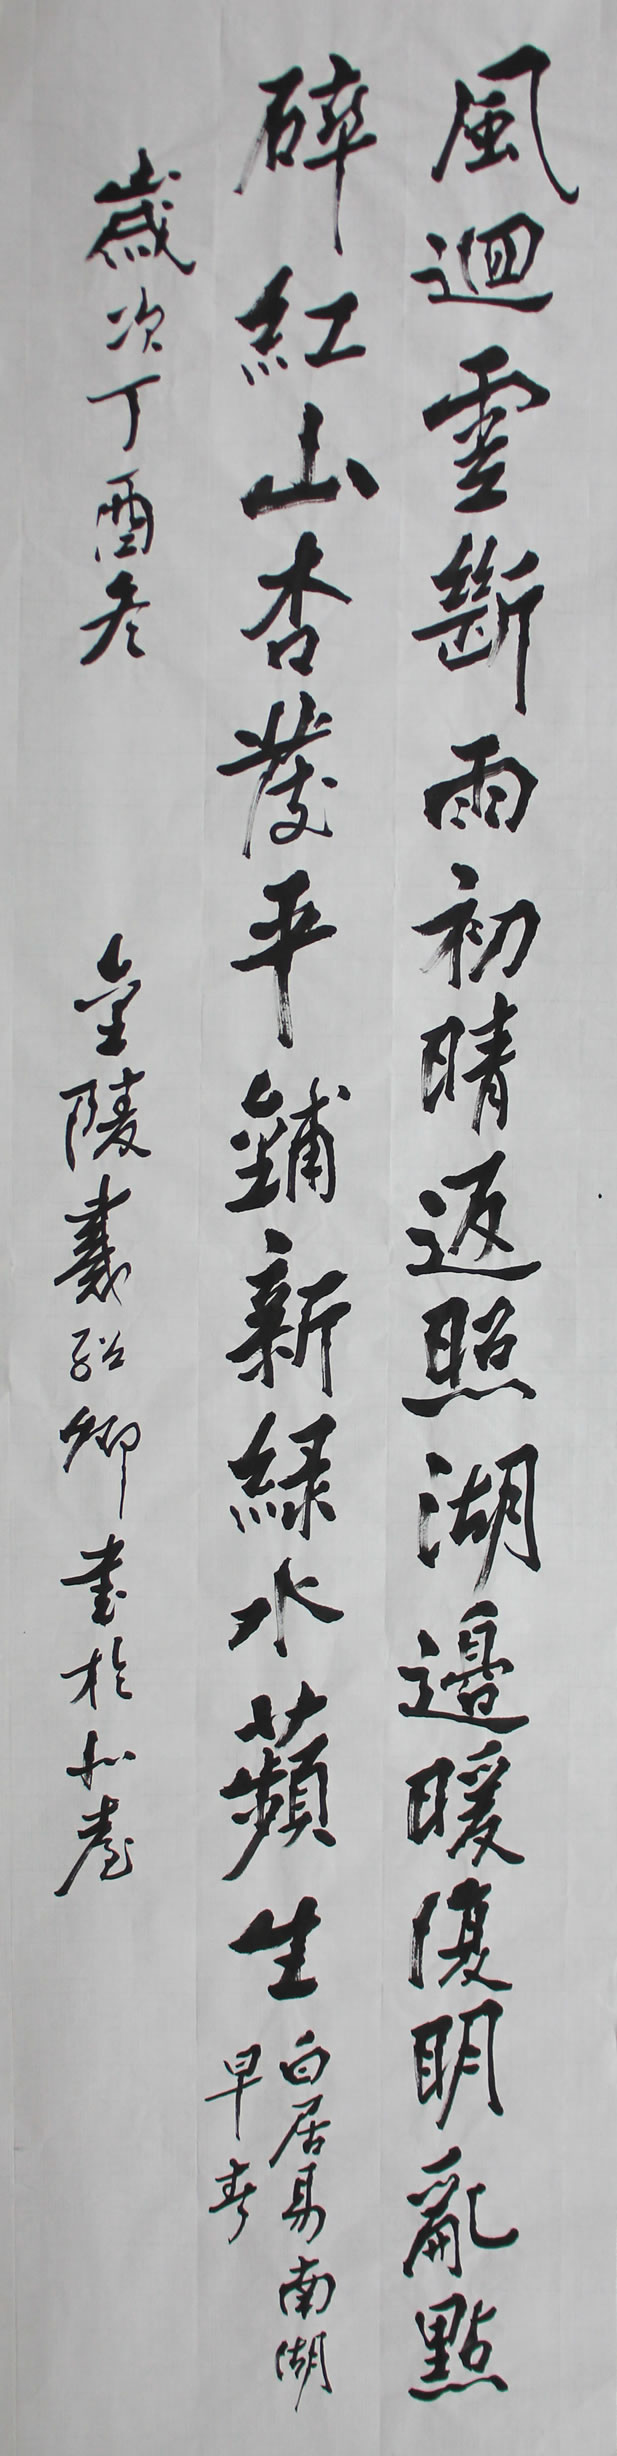 風迴雲斷雨初晴返照湖邊暖復明亂點
碎紅山杏發平鋪新綠水蘋生
白居易南湖
早春
歲次丁酉冬
金陵戴紹卿書於北臺